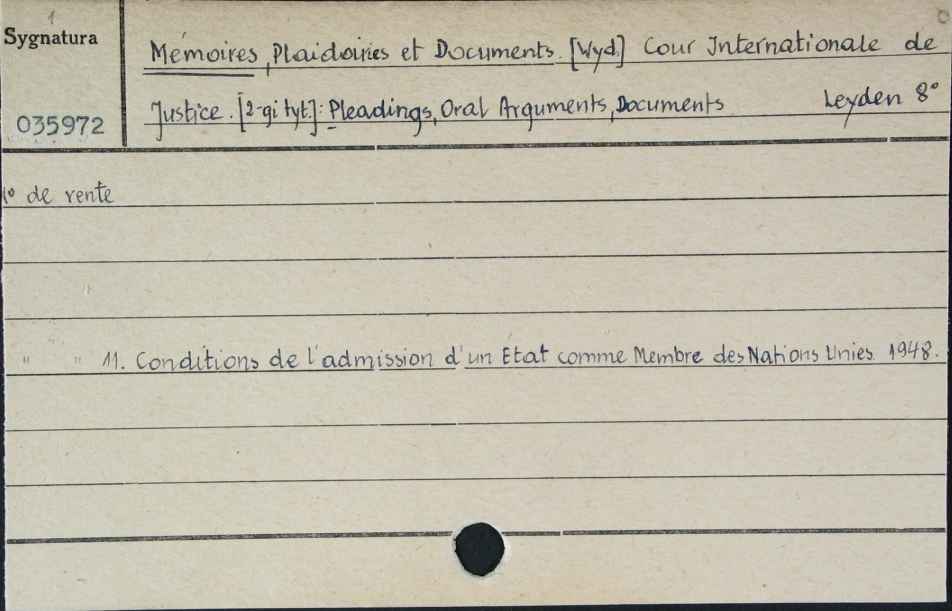 1
Sygnatura
Mémoires, Plaidoiries et Documents. [Wyd.] Cour Internationale de
035972
Justice. [2-gi tyt.]: Pleadings, Oral Arguments, Documents Leyden 8°
N° de vente
" " 11. Conditions de l'admission d'un Etat comme Membre des Nations Unies. 1948.